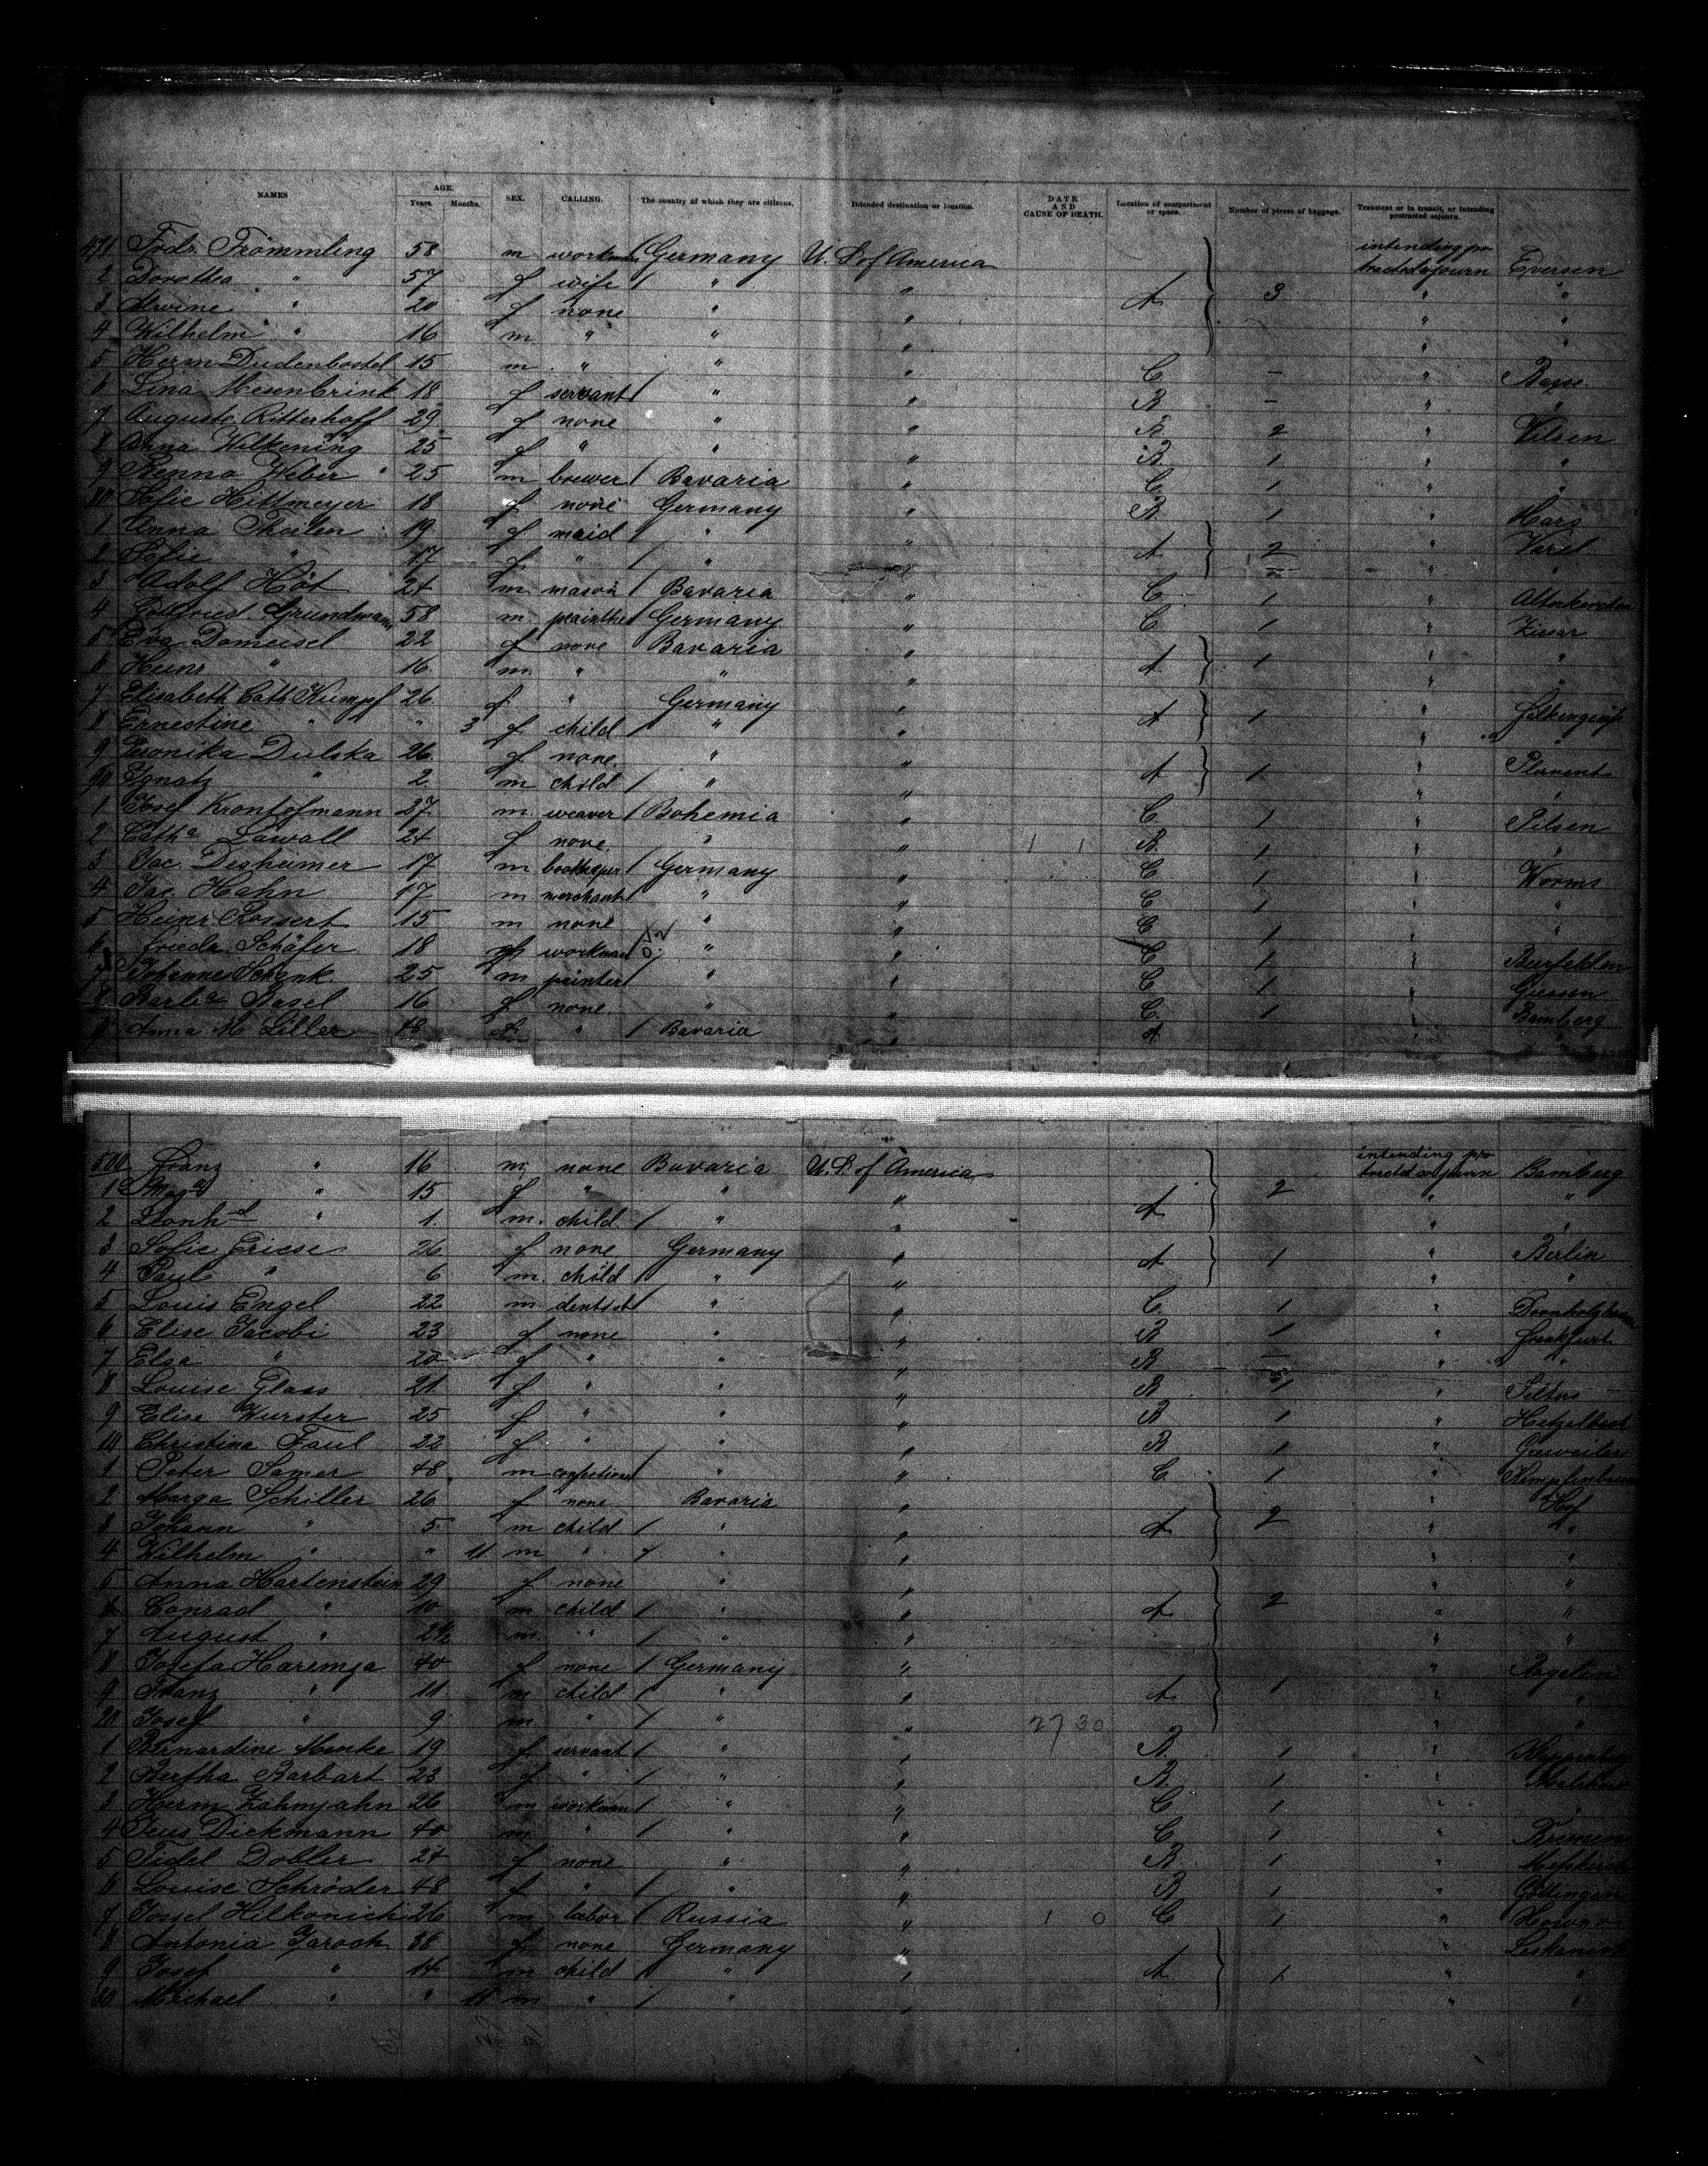 NAMES AGE. Years. Months. SEX. CALLING. The country of which they are citizens. Intended destination or location. DATE AND CAUSE OF DEATH. Location of compartment or space. Number of pieces of baggage. Transient or in transit, or intending protracted sojourn.
471 Fredr. Trömmling 58 m workman Germany U. S. of America intending protracted sojourn Eversen
2 Dorothea " 57 f wife / " " A 3 " "
3 Alwine " 20 f none " " " "
4 Wilhelm " 16 m " " " " "
5 Herm Dudenbostel 15 m " " " C – "
6 Lina Mesenbrink 18 f servant / " " B – " "
7 Auguste Ritterhoff 29 f none " " B 2 " Vilsen
8 Anna Wilkening 25 f " " " B 1 " "
9 Benno Weber 25 m brewer / Bavaria " C 1 " "
80 Sofie Hittmeyer 18 f none Germany " B 1 "
1 Anna Theilen 19 f maid / " " A 2 " Varel
2 Sofie " 17 f " / " " " "
3 Adolf Höt 24 m mason / Bavaria " C 1 " Altenkirchen
4 Gottfried Grundmann 58 m Germany " C 1 " Ziesar
5 Eva Domeisel 22 f none Bavaria " A 1 " "
6 Heinr " 16 m " " " " "
7 Elisabeth Cath Kumpf 26 f " Germany " A 1 "
8 Ernestine " " 3 f child / " " " "
9 Veronika Dulska 26 f none " " A 1 "
90 Ignatz " 2 m child / " " " "
1 Josef Krontofmann 27 m weaver / Bohemia " C 1 " Pilsen
2 Cath<sup>a</sup> Lawall 24 f none " " 1 1 B 1 " "
3 Jac. Desheimer 17 m / Germany " C 1 " Worms
4 Jac. Hahn 17 m merchant / " " C 1 " "
5 Heinr Rossert 15 m none " " C 1 " "
6 Friedr. Schäfer 18 workman " " C 1 " Beerfelden
7 Johannes Schenk 25 m painter / " " C 1 " Giessen
8 Barb<sup>a</sup> Basel 16 f none " " C 1 " Bamberg
9 Anna M Liller 48 f " / Bavaria " A "
500 Franz " 16 m none Bavaria U. S. of America intending protracted sojourn Bamberg
1 " 15 f " " " A 2 " "
2 Leonh<sup>d</sup> " 1 m child / " " " "
3 Sofie Griese 26 f none Germany " A 1 " Berlin
4 Paul " 6 m child / " " " "
5 Louis Engel 22 m dentist / " " C 1 "
6 Elise Jacobi 23 f none " " B 1 " Frankfurt
7 Elsa " 20 f " " " B – " "
8 Louise Glass 21 f " " " B 1 "
9 Elise Wurster 25 f " " " B 1 "
10 Christina Faul 22 f " " " B 1 "
1 Peter Samer 48 m confectioner / " " C 1 "
2 Marga Schiller 26 f none Bavaria " " Hof
3 Johann " 5 m child / " " A 2 " "
4 Wilhelm " " 11 m " / " " " "
5 Anna Hartenstein 29 f none " " " "
6 Conrad " 10 m child / " " A 2 " "
7 August " 2½ m " / " " " "
8 Josefa Haremza 40 f none / Germany " " Rogalin
9 Franz " 11 m child / " " A 1 " "
20 Josef " 9 m " / " " 2730 " "
1 Bernardine Menke 19 f servant / " " B 1 "
2 Bertha Barbart 23 f " / " " B 1 "
3 Herm Zahmjahn 26 m workman / " " C 1 " "
4 Jens Dickmann 40 m " / " " C 1 " Bremen
5 Fidel Dobler 24 f none " " B 1 " Messkirch
6 Louise Schröder 48 f " / " " B 1 " Göttingen
7 Jossel Hilkonich 26 m labor / Russia " 1 0 C 1 " Kowno
8 Antonia Jaroch 38 f none Germany " "
9 Josef " 14 m child / " " A 1 " "
30 Michael " " 11 m " / " " " "